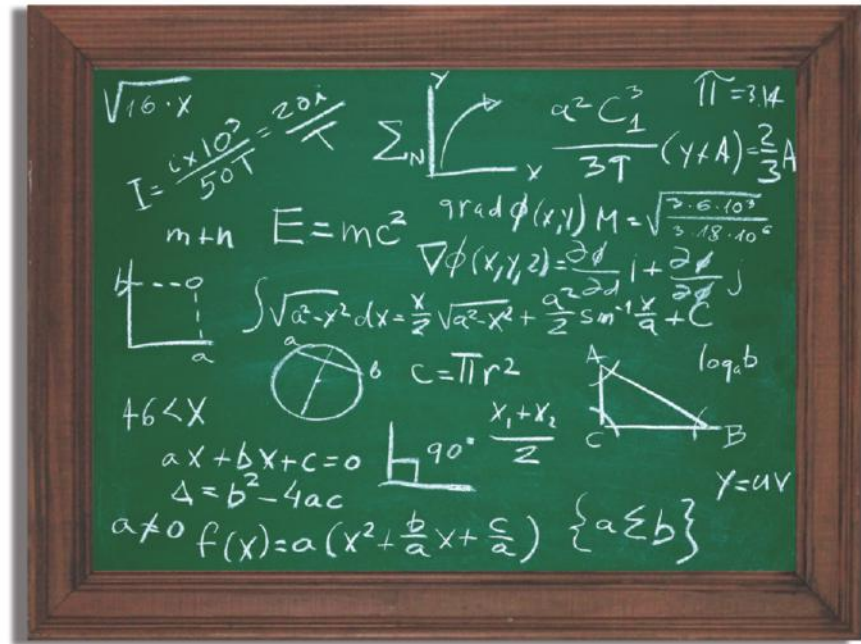 √16·x
I = i×10³/50T = 20i/T
Σ_N
Y
X
a²C₁³/3T (y+A) = 2/3 A
π = 3.14
m+n
E = mc²
grad ϕ(x,y) M = √(3·6·10³/3·18·10⁶)
∇ϕ(x,y,z) = ∂ϕ/∂d i + ∂ϕ/∂ϕ j
b
a
∫√a²-x² dx = x/2 √a²-x² + a²/2 sin⁻¹ x/a + C
a
b
c = πr²
A
C
B
logₐb
46<X
ax+bx+c=0
Δ=b²-4ac
90°
x₁+x₂/2
y=uv
a≠0
f(x)=a(x²+b/a x+c/a)
{a≤b}